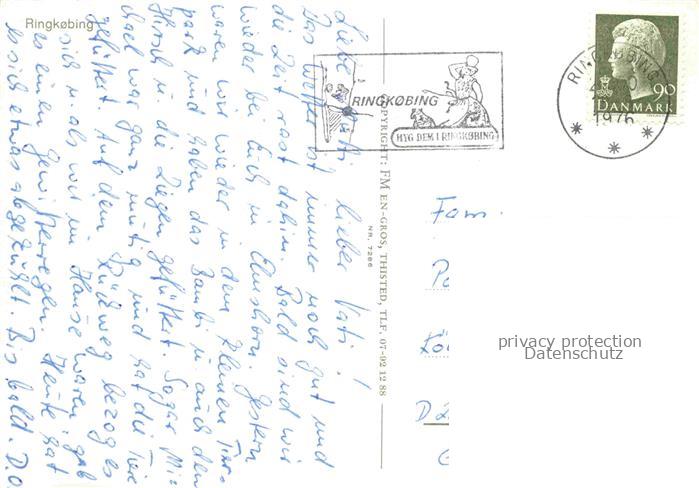 Ringkøbing
Liebe Mutti, lieber Vati!
Das Wetter ist immer noch gut und
die Zeit rast dahin. Bald sind wir
wieder bei Euch in Elmshorn. Gestern
waren wir wieder in dem kleinen Tier-
park und haben das Bambi u. auch den
Hirsch u. die Ziegen gefüttert. Sogar Mi-
chael war ganz mutig und hat die Tiere
gefüttert. Auf dem Rückweg bezog es
sich u. als wir im Hause waren, gab
es einen Gewitterregen. Heute hat
es sich etwas abgekühlt. Bis bald. D.O.
COPYRIGHT: FM EN-GROS, THISTED, TLF. 07-92 12 88
NR. 7286
RINGKØBING
HYG DEM I RINGKØBING
RINGKØBING
1976
90
DANMARK
Fam.
privacy protection
Datenschutz